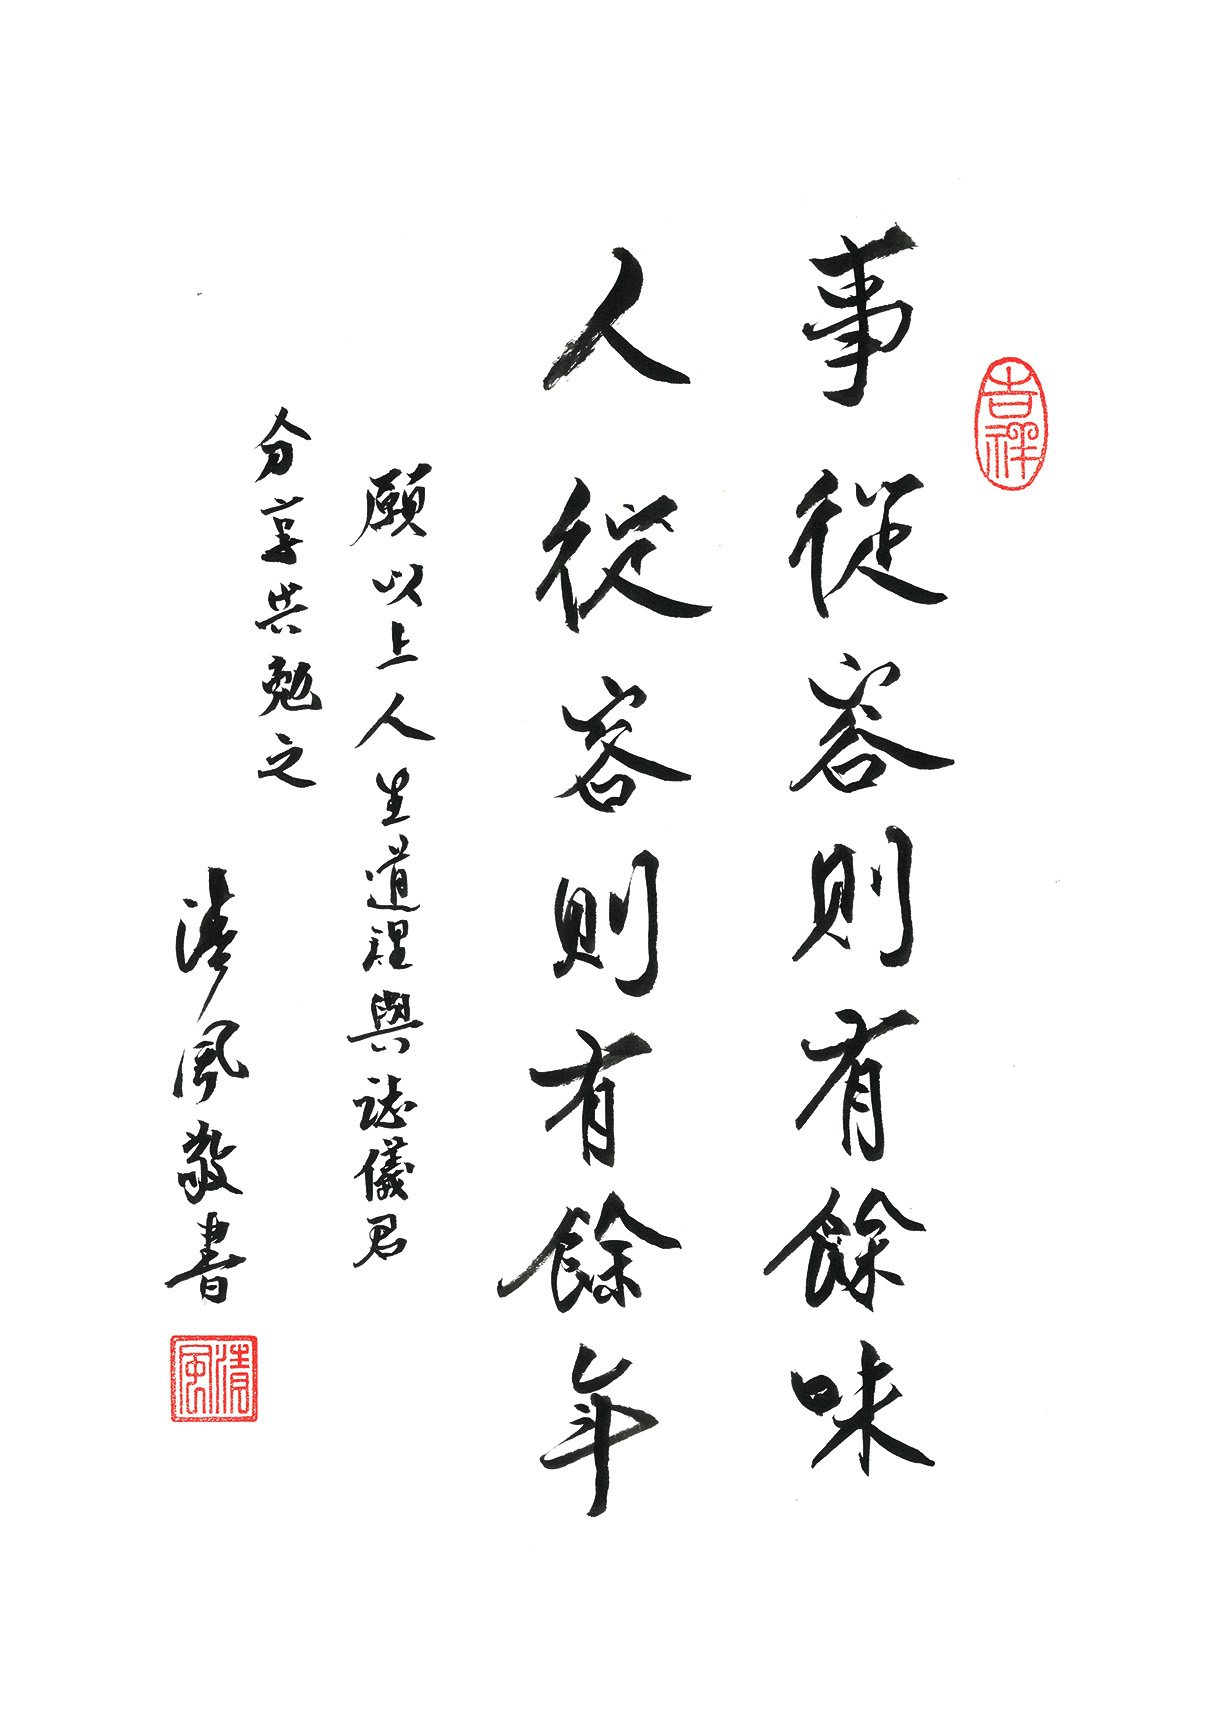 吉祥
事從容則有餘味
人從容則有餘年
願以上人生道理與誌儀君
分享共勉之
清風敬書
清風